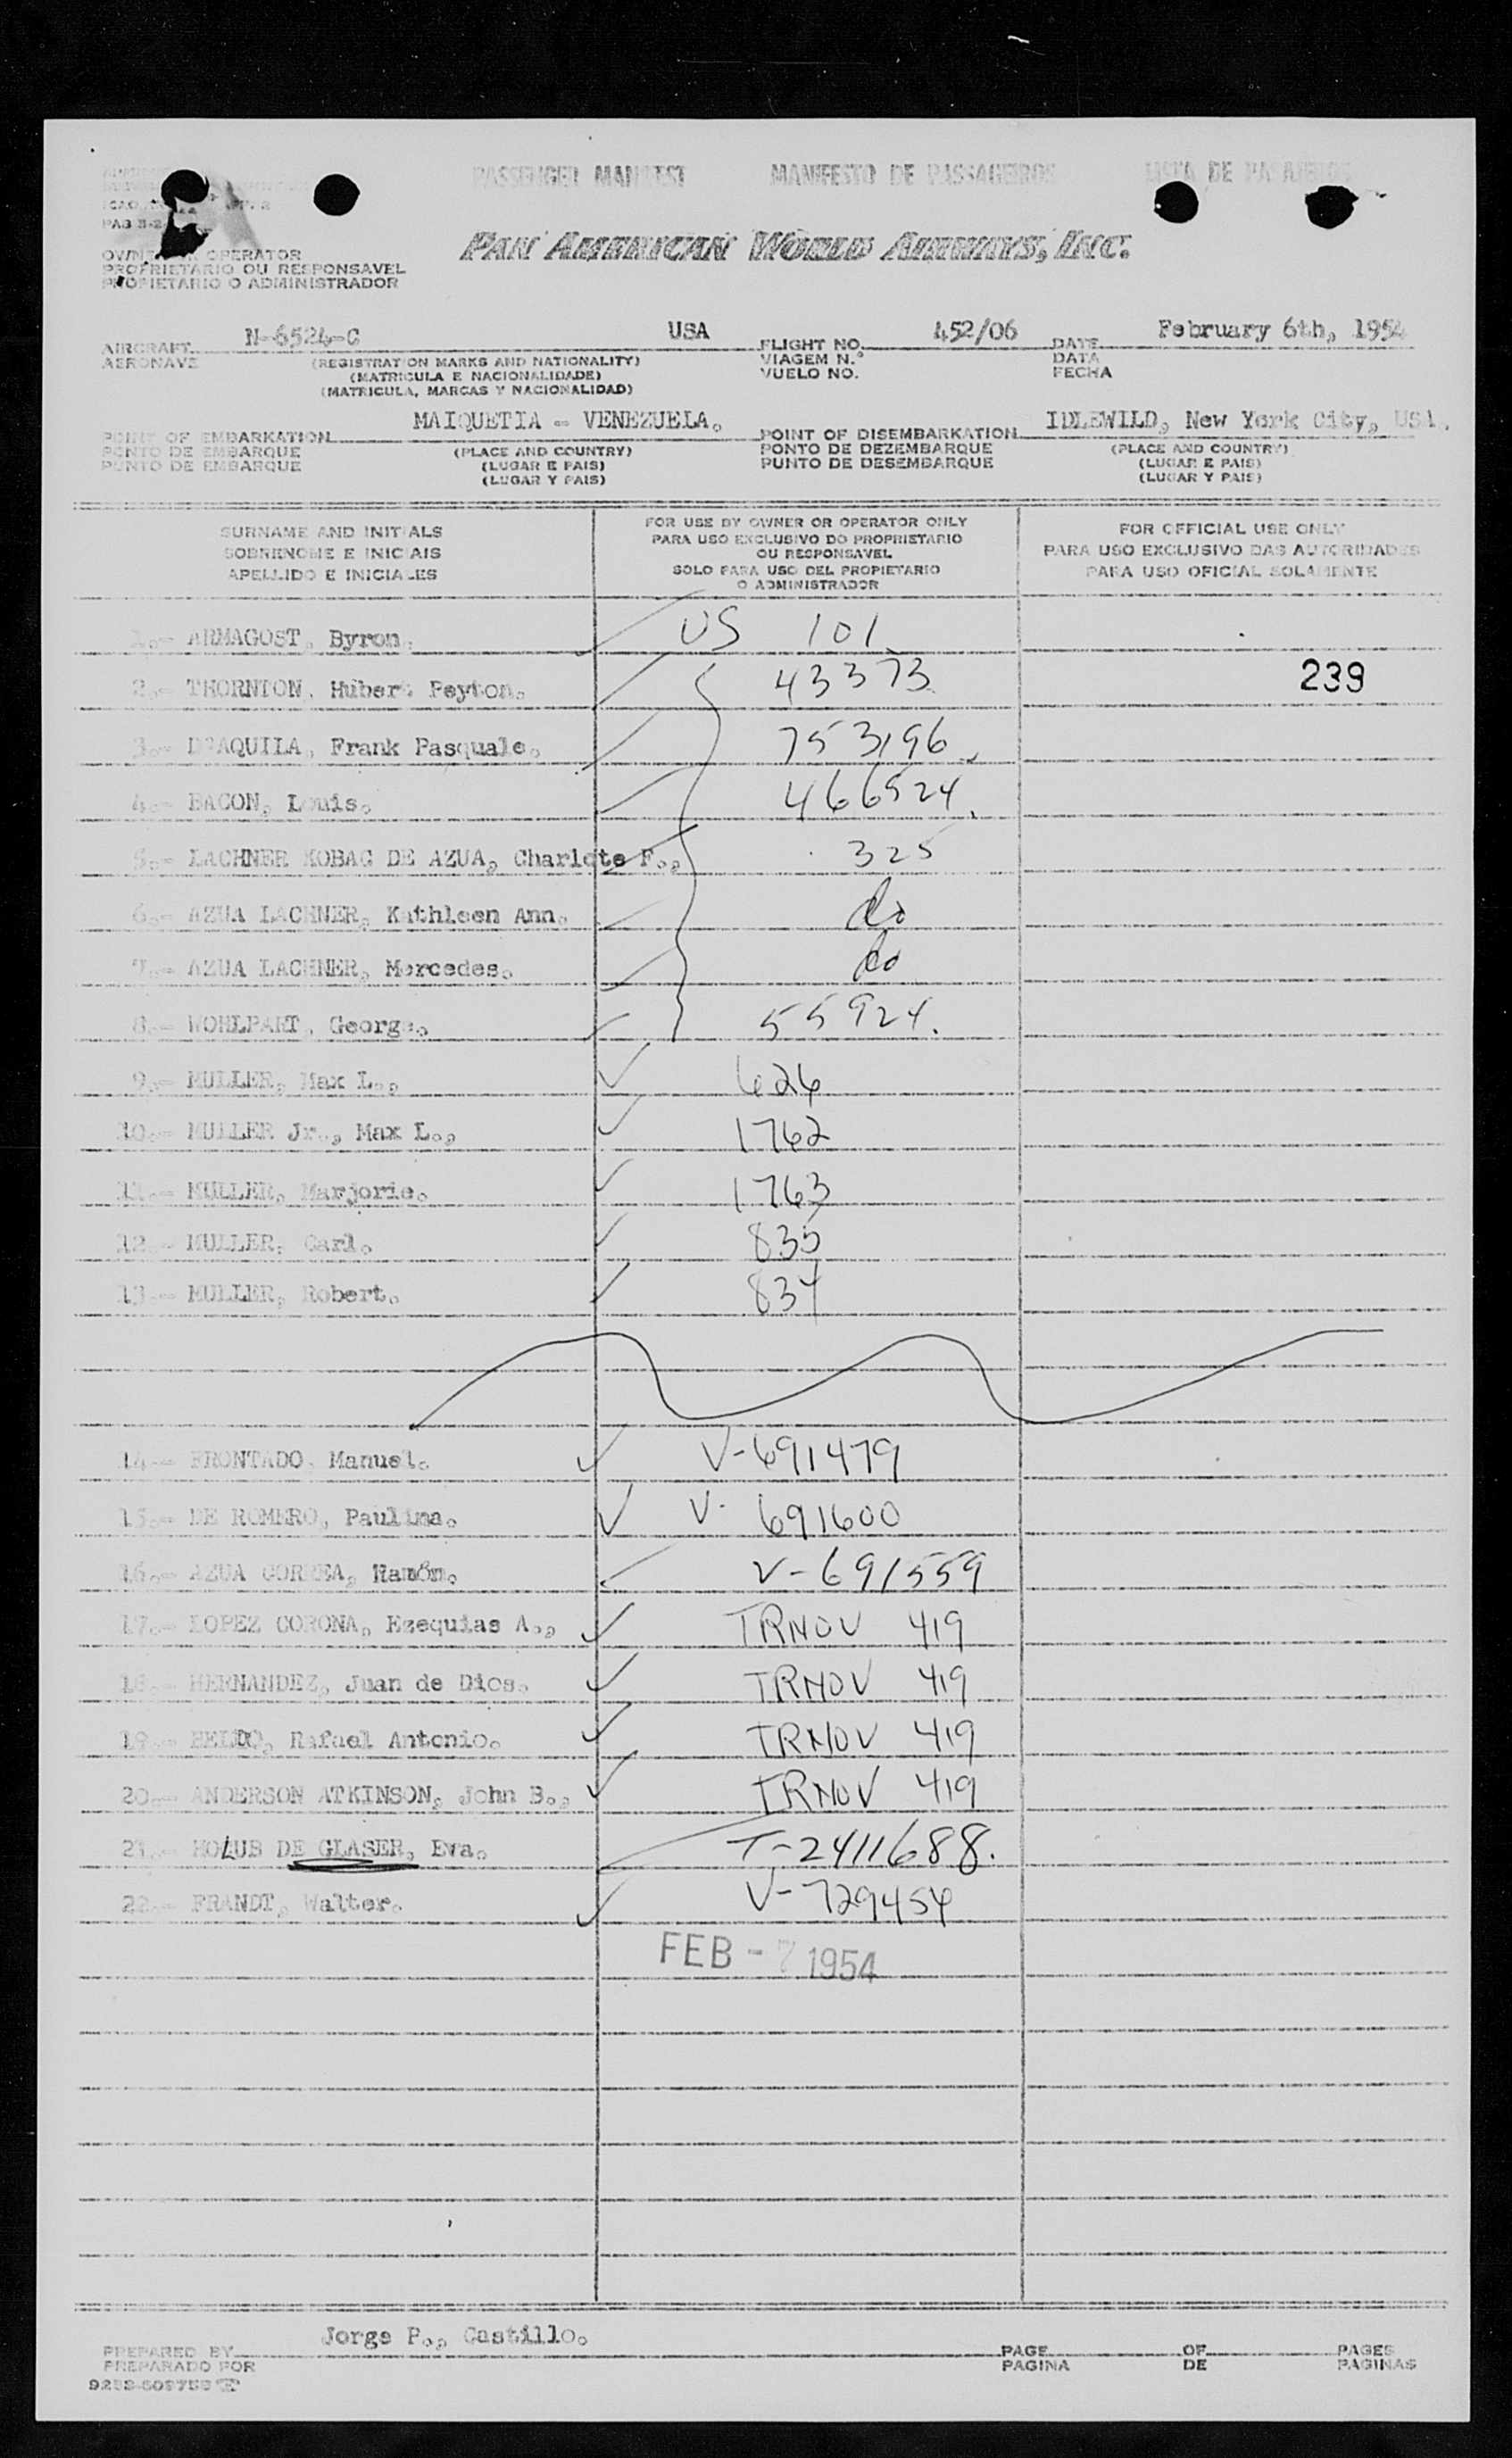 PASSENGER MANIFEST MANIFESTO DE PASSAGEIROS LISTA DE PASAJEROS
OPERATOR
PROPRIETARIO OU RESPONSAVEL
PROPIETARIO O ADMINISTRADOR
PAN AMERICAN WORLD AIRWAYS, INC.
AIRCRAFT N-6524-C USA FLIGHT NO. 452/06 DATE February 6th, 1954
AERONAVE (REGISTRATION MARKS AND NATIONALITY) VIAGEM N.º DATA
(MATRICULA E NACIONALIDADE) VUELO NO. FECHA
(MATRICULA, MARCAS Y NACIONALIDAD)
POINT OF EMBARKATION MAIQUETIA - VENEZUELA. POINT OF DISEMBARKATION IDLEWILD, New York City, USA.
PONTO DE EMBARQUE (PLACE AND COUNTRY) PONTO DE DEZEMBARQUE (PLACE AND COUNTRY)
PUNTO DE EMBARQUE (LUGAR E PAIS) PUNTO DE DESEMBARQUE (LUGAR E PAIS)
(LUGAR Y PAIS) (LUGAR Y PAIS)
SURNAME AND INITIALS FOR USE BY OWNER OR OPERATOR ONLY FOR OFFICIAL USE ONLY
SOBRENOME E INICIAIS PARA USO EXCLUSIVO DO PROPRIETARIO PARA USO EXCLUSIVO DAS AUTORIDADES
OU RESPONSAVEL
APELLIDO E INICIALES SOLO PARA USO DEL PROPIETARIO PARA USO OFICIAL SOLAMENTE
O ADMINISTRADOR
1.- ARMAGOST, Byron. US 101
2.- THORNTON, Hubert Peyton. 43373 239
3.- D'AQUILA, Frank Pasquale. 753196
4.- BACON, Louis. 466524
5.- LACHNER KOBAC DE AZUA, Charlote F., 325
6.- AZUA LACHNER, Kathleen Ann. do
7.- AZUA LACHNER, Mercedes. do
8.- WOHLPART, George. 55924.
9.- MULLER, Max L., 626
10.- MULLER Jr., Max L., 1762
11.- MULLER, Marjorie. 1763
12.- MULLER, Carl. 835
13.- MULLER, Robert. 834
14.- FRONTADO, Manuel. V-691479
15.- DE ROMERO, Paulina. V-691600
16.- AZUA CORREA, Ramón. V-691559
17.- LOPEZ CORONA, Ezequias A., TRNOV 419
18.- HERNANDEZ, Juan de Dios. TRNOV 419
19.- BELLO, Rafael Antonio. TRNOV 419
20.- ANDERSON ATKINSON, John B., TRNOV 419
21.- HOLUB DE GLASER, Eva. T-2411688.
22.- FRANDT, Walter. V-729454
FEB - 7 1954
PREPARED BY Jorge P., Castillo. PAGE OF PAGES
PREPARADO POR PAGINA DE PAGINAS